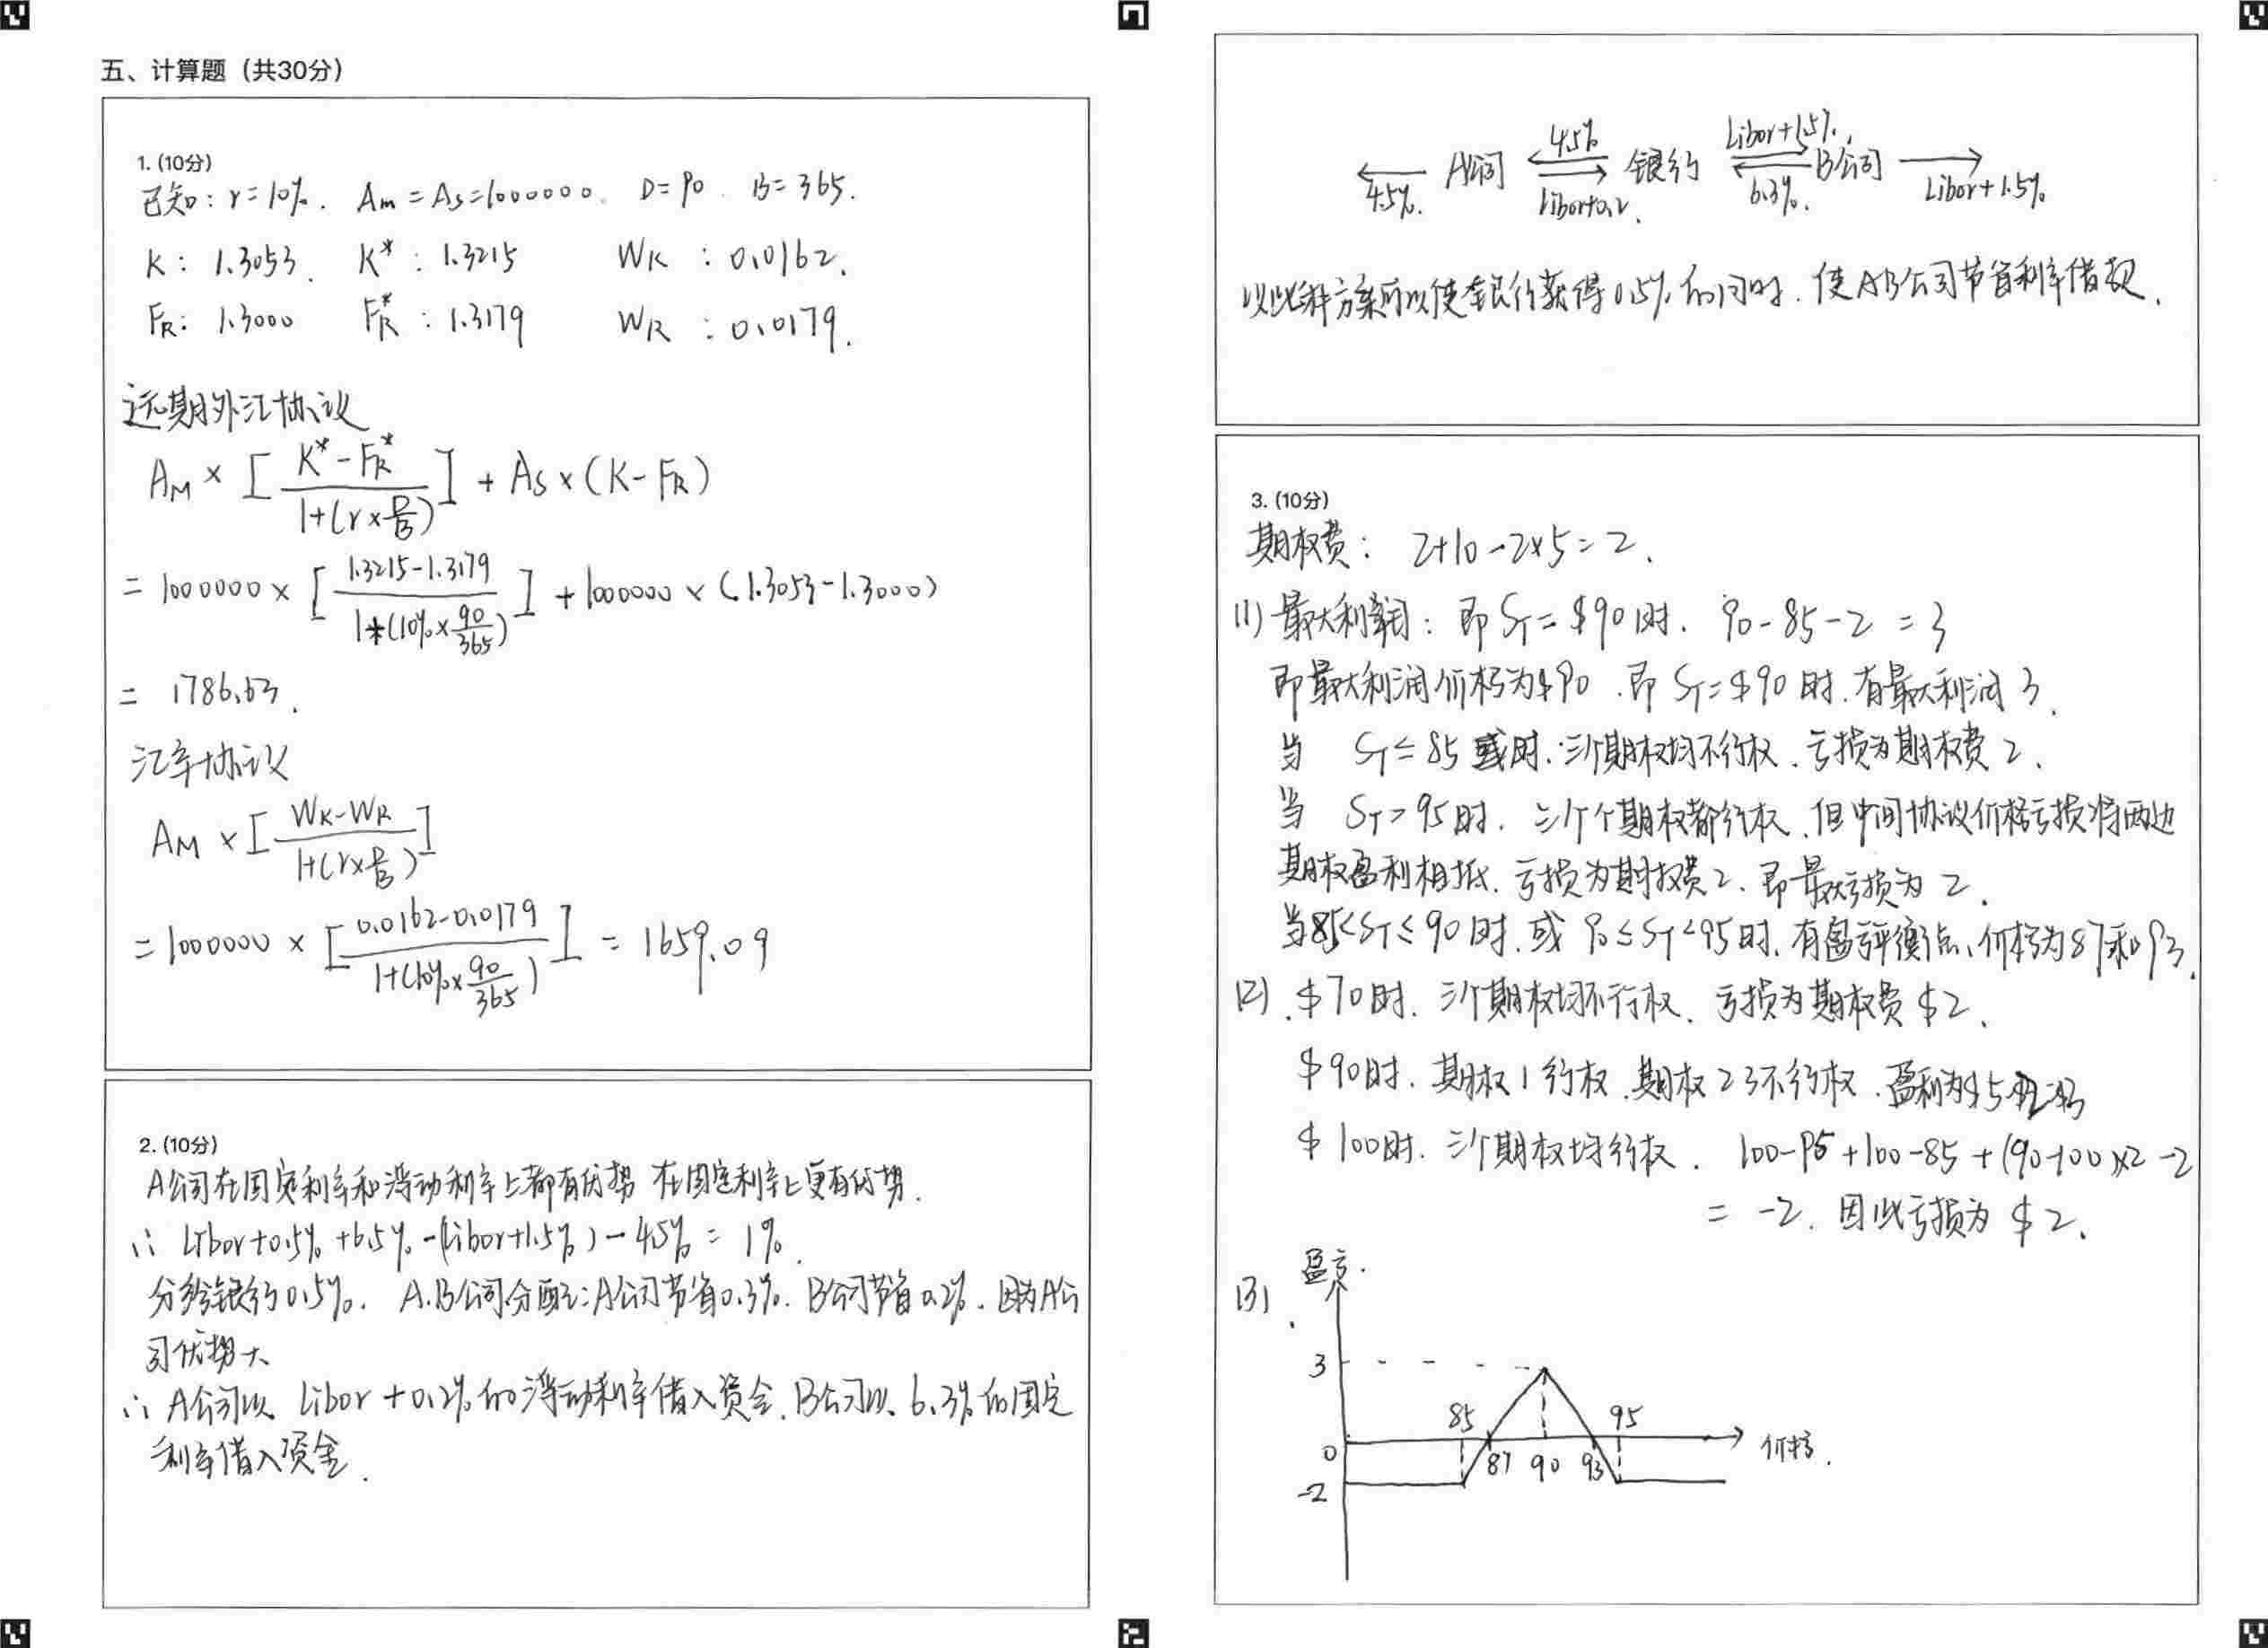 五、计算题（共30分）
1. (10分)
已知：r=10%. Am=As=1000000. D=90. B=365.
K: 1.3053. K*: 1.3215 WK : 0.0162.
FR: 1.3000 FR*: 1.3179 WR : 0.0179.
远期外汇协议
AM × [ (K*-FR*) / (1+(r×D/B)) ] + As×(K-FR)
= 1000000 × [ (1.3215-1.3179) / (1+(10%×90/365)) ] + 1000000 × (1.3053-1.3000)
= 1786.63.
汇率协议
AM × [ (WK-WR) / (1+(r×D/B)) ]
=1000000 × [ (0.0162-0.0179) / (1+(10%×90/365)) ] = 1659.09
2. (10分)
A公司在固定利率和浮动利率上都有优势 在固定利率上更有优势.
∴ Libor+0.5%+6.5%-(Libor+1.5%)-4.5% = 1%.
分给银行0.5%. A.B公司分配：A公司节省0.3%. B公司节省0.2%. 因为A公
司优势大
∴ A公司以 Libor+0.2%的浮动利率借入资金. B公司以 6.3%的固定
利率借入资金.
4.5% Libor+1.5%.
← A公司 ⇄ 银行 ⇄ B公司 →
4.5%. Libor+0.2. 6.3%. Libor+1.5%
以此种方案可以使银行获得0.5%的同时. 使AB公司节省利率借款.
3. (10分)
期权费： 2+10-2×5=2.
(1) 最大利润：即 ST=$90时. 90-85-2 = 3
即最大利润价格为$90. 即 ST=$90时. 有最大利润 3.
当 ST≤85 时. 三个期权均不行权. 亏损为期权费 2.
当 ST>95时. 三个个期权都行权. 但中间协议价格亏损将两边
期权盈利相抵. 亏损为期权费2. 即最大亏损为 2.
当85<ST≤90时. 或 90≤ST<95时. 有盈亏平衡点. 价格为87和93.
(2). $70时. 三个期权均不行权. 亏损为期权费 $2.
$90时. 期权1行权. 期权23不行权. 盈利为$5-$2=$3
$100时. 三个期权均行权. 100-95+100-85+(90-100)×2-2
= -2. 因此亏损为 $2.
(3). 盈亏.
3
85 95
0 87 90 93 价格.
-2